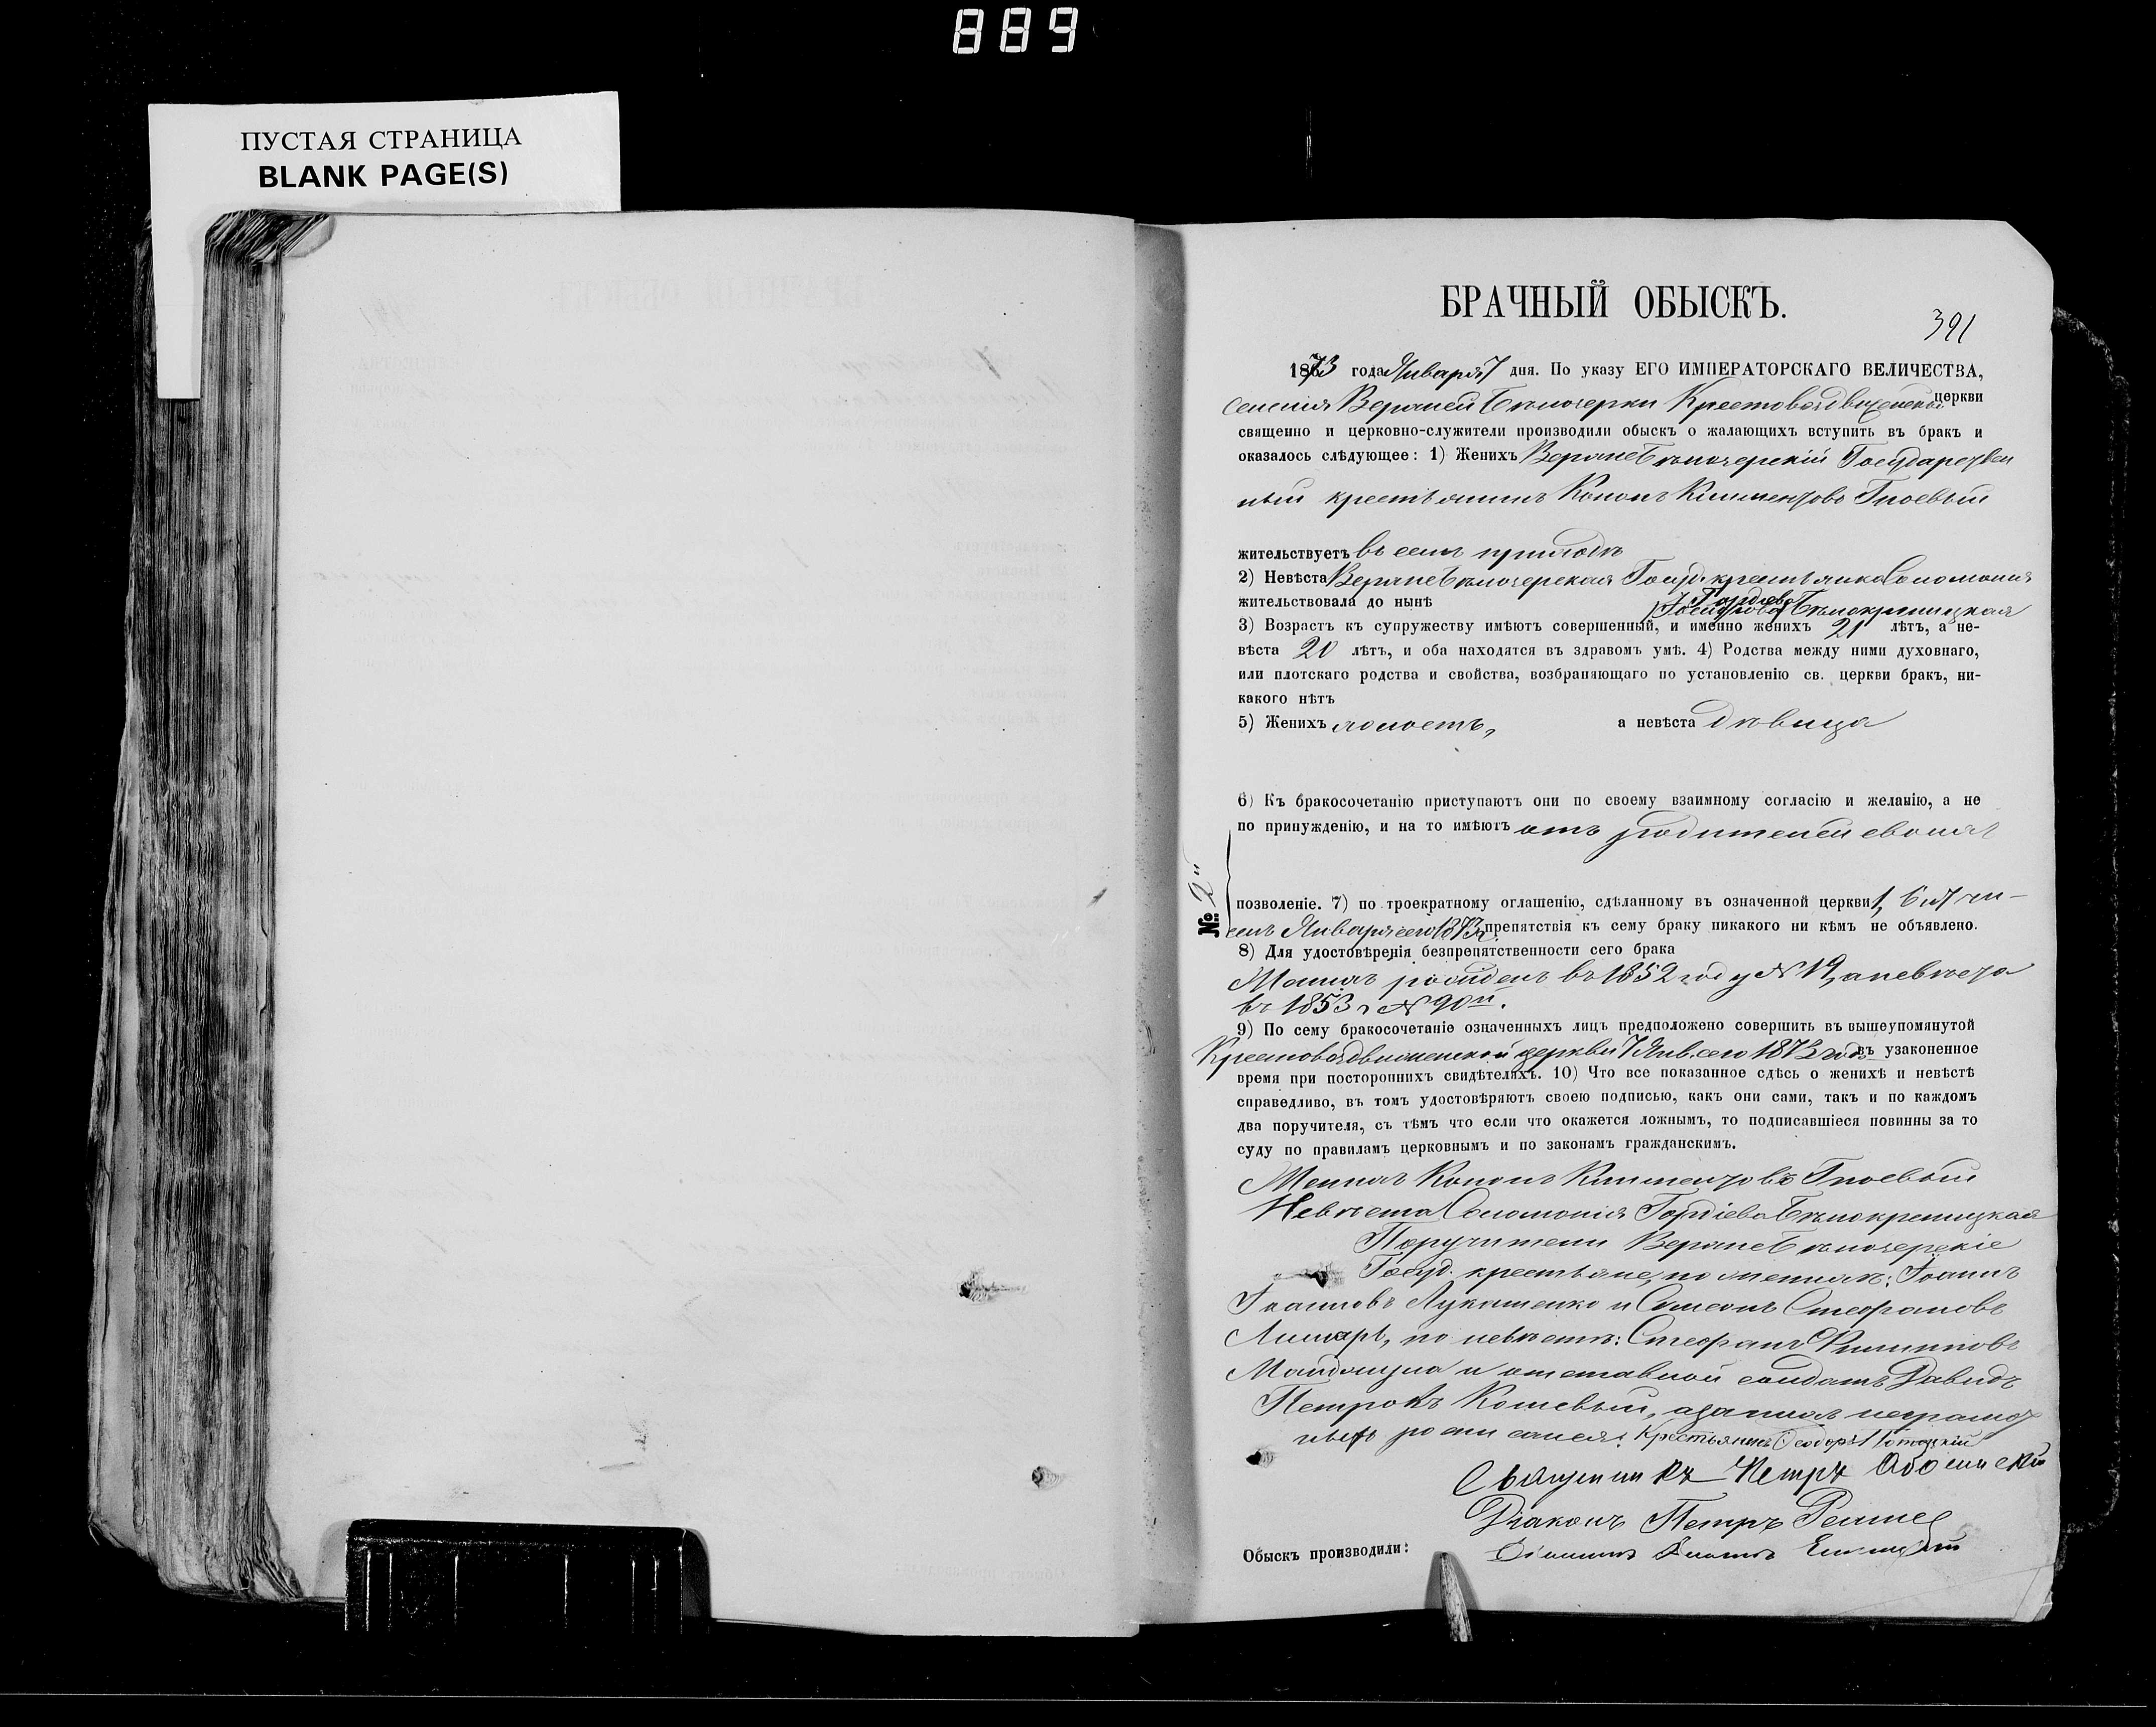 889
ПУСТАЯ СТРАНИЦА
BLANK PAGE(S)
БРАЧНЫЙ ОБЫСКЪ.
391
1873 года Января 7 дня. По указу ЕГО ИМПЕРАТОРСКАГО ВЕЛИЧЕСТВА,
селенія Верхней Бѣлозерки Крестовоздвиженской церкви
священно и церковно-служители производили обыскъ о жалающихъ вступить въ бракъ и
оказалось слѣдующее: 1) Женихъ Верхнебѣлозерскій Государствен
ный крестьянинъ Кононъ Климентовъ Гноевый
жительствуетъ въ семъ приходѣ
2) Невѣста Верхнебѣлозерская Госуд. крестьянка Соломонія
жительствовала до нынѣ Гордіева Бѣлокриницкая
3) Возрастъ къ супружеству имѣютъ совершенный, и именно женихъ 21 лѣтъ, а не-
вѣста 20 лѣтъ, и оба находятся въ здравомъ умѣ. 4) Родства между ними духовнаго,
или плотскаго родства и свойства, возбраняющаго по установленію св. церкви бракъ, ни-
какого нѣтъ
5) Женихъ холостъ, а невѣста дѣвица
6) Къ бракосочетанію приступаютъ они по своему взаимному согласію и желанію, а не
по принужденію, и на то имѣютъ отъ родителей своихъ
№ 2
позволеніе. 7) по троекратному оглашенію, сдѣланному въ означенной церкви 1, 6 и 7 чи-
селъ Января сего 1873 г. препятствія къ сему браку никакого ни кѣмъ не объявлено.
8) Для удостовѣренія безпрепятственности сего брака
Женихъ рожденъ въ 1852 году № 19, а невѣста
въ 1853 г № 90й.
9) По сему бракосочетаніе означенныхъ лицъ предположено совершить въ вышеупомянутой
Крестовоздвиженской церкви 7 Янв. сего 1873 года въ узаконенное
время при постороннихъ свидѣтеляхъ. 10) Что все показанное сдѣсь о женихѣ и невѣстѣ
справедливо, въ томъ удостовѣряютъ своею подписью, какъ они сами, такъ и по каждомъ
два поручителя, съ тѣмъ что если что окажется ложнымъ, то подписавшіеся повинны за то
суду по правиламъ церковнымъ и по законамъ гражданскимъ.
Женихъ Кононъ Климентовъ Гноевый
Невѣста Соломонія Гордіева Бѣлокреницкая
Поручители Верхнебѣлозерскіе
Госуд. крестьяне, по женихѣ: Іоаннъ
Іоанновъ Лукашенко и Симеонъ Стефановъ
Лимарь, по невѣстѣ: Стефанъ Филипповъ
и отставной солдатъ Давидъ
Петровъ Кошевый, а за нихъ неграмот
ныхъ росписался Крестьянинъ Ѳеодоръ
Священникъ Петръ
Діаконъ Петръ
Обыскъ производили: